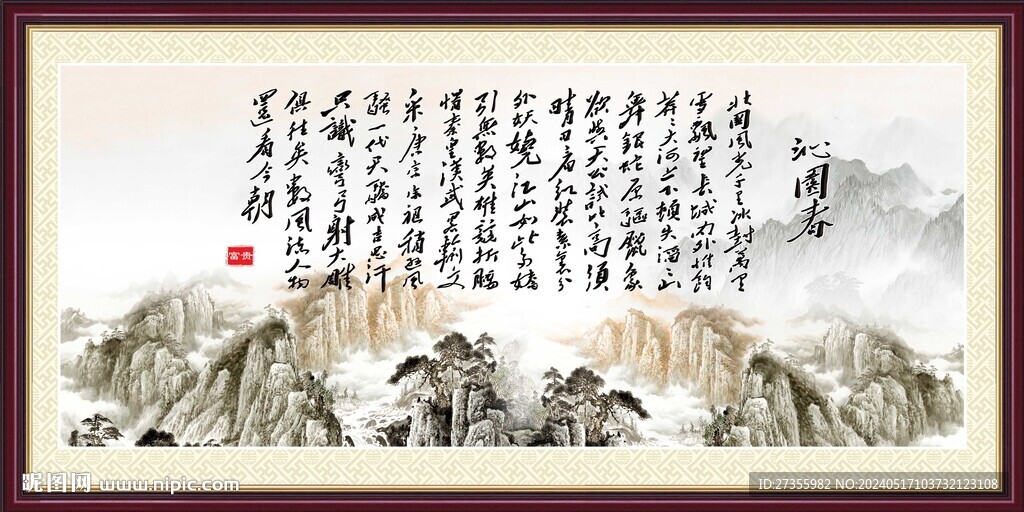 沁園春
北國風光千里冰封萬里
雪飄望長城内外惟餘
莽々大河上下頓失滔々山
舞銀蛇原驅蠟象
欲與天公試比高須
晴日看紅裝素裹分
外妖嬈江山如此多嬌
引無數英雄競折腰
惜秦皇漢武略輸文
采唐宗宋祖稍遜風
騷一代天驕成吉思汗
只識彎弓射大雕
俱往矣數風流人物
還看今朝
富·贵
昵图网 www.nipic.com
ID:27355982 NO:20240517103732123108